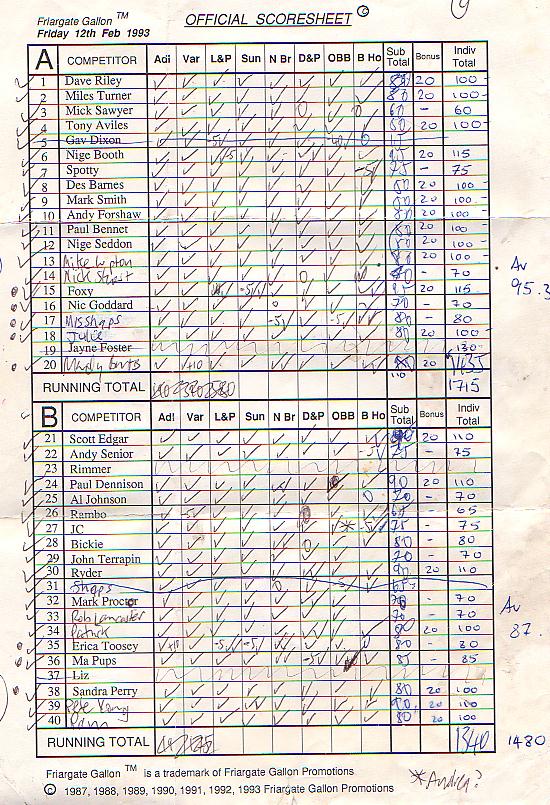 Friargate Gallon ™ OFFICIAL SCORESHEET ©
Friday 12th Feb 1993
A COMPETITOR Adi Var L&P Sun N Br D&P OBB B Ho Sub Total Bonus Indiv Total
1 Dave Riley 20 100
2 Miles Turner 80 20 100
3 Mick Sawyer 60 - 60
4 Tony Aviles 80 20 100
5 Gav Dixon
6 Nige Booth 20 115
7 Spotty -5 75 - 75
8 Des Barnes 80 20 100
9 Mark Smith 80 20 100
10 Andy Forshaw 80 20 100
11 Paul Bennet 80 20 100
12 Nige Seddon 80 20 100
13 Mike Upton 80 20 100
14 Mick Street - 70
15 Foxy 20 115
16 Nic Goddard 70 - 70
17 Misshaps -5 -5 - 80
18 Julie 80 20 100
19 Jayne Foster
20 +10 20 130
110
Av 95.3
RUNNING TOTAL 1435
1715
B COMPETITOR Adi Var L&P Sun N Br D&P OBB B Ho Sub Total Bonus Indiv Total
21 Scott Edgar 20 110
22 Andy Senior -5 75 - 75
23 Rimmer
24 Paul Dennison 90 20 110
25 Al Johnson 70 - 70
26 Rambo -5 65 - 65
27 JC * -5 75 - 75
28 Bickie 80 - 80
29 John Terrapin 70 - 70
30 Ryder 90 20 110
31 Shaps
32 Mark Proctor 70 - 70
33 Rob Lancaster 70 - 70
34 Patrick 80 20 100
35 Erica Toosey +10 -5 -5 80 - 80
36 Ma Pups -5 85 - 85
37 Liz
38 Sandra Perry 80 20 100
39 Pete Young 20 100
40 80 20 100
Av 87.
RUNNING TOTAL 1340 1480
Friargate Gallon ™ is a trademark of Friargate Gallon Promotions
© 1987, 1988, 1989, 1990, 1991, 1992, 1993 Friargate Gallon Promotions
* Andrea?